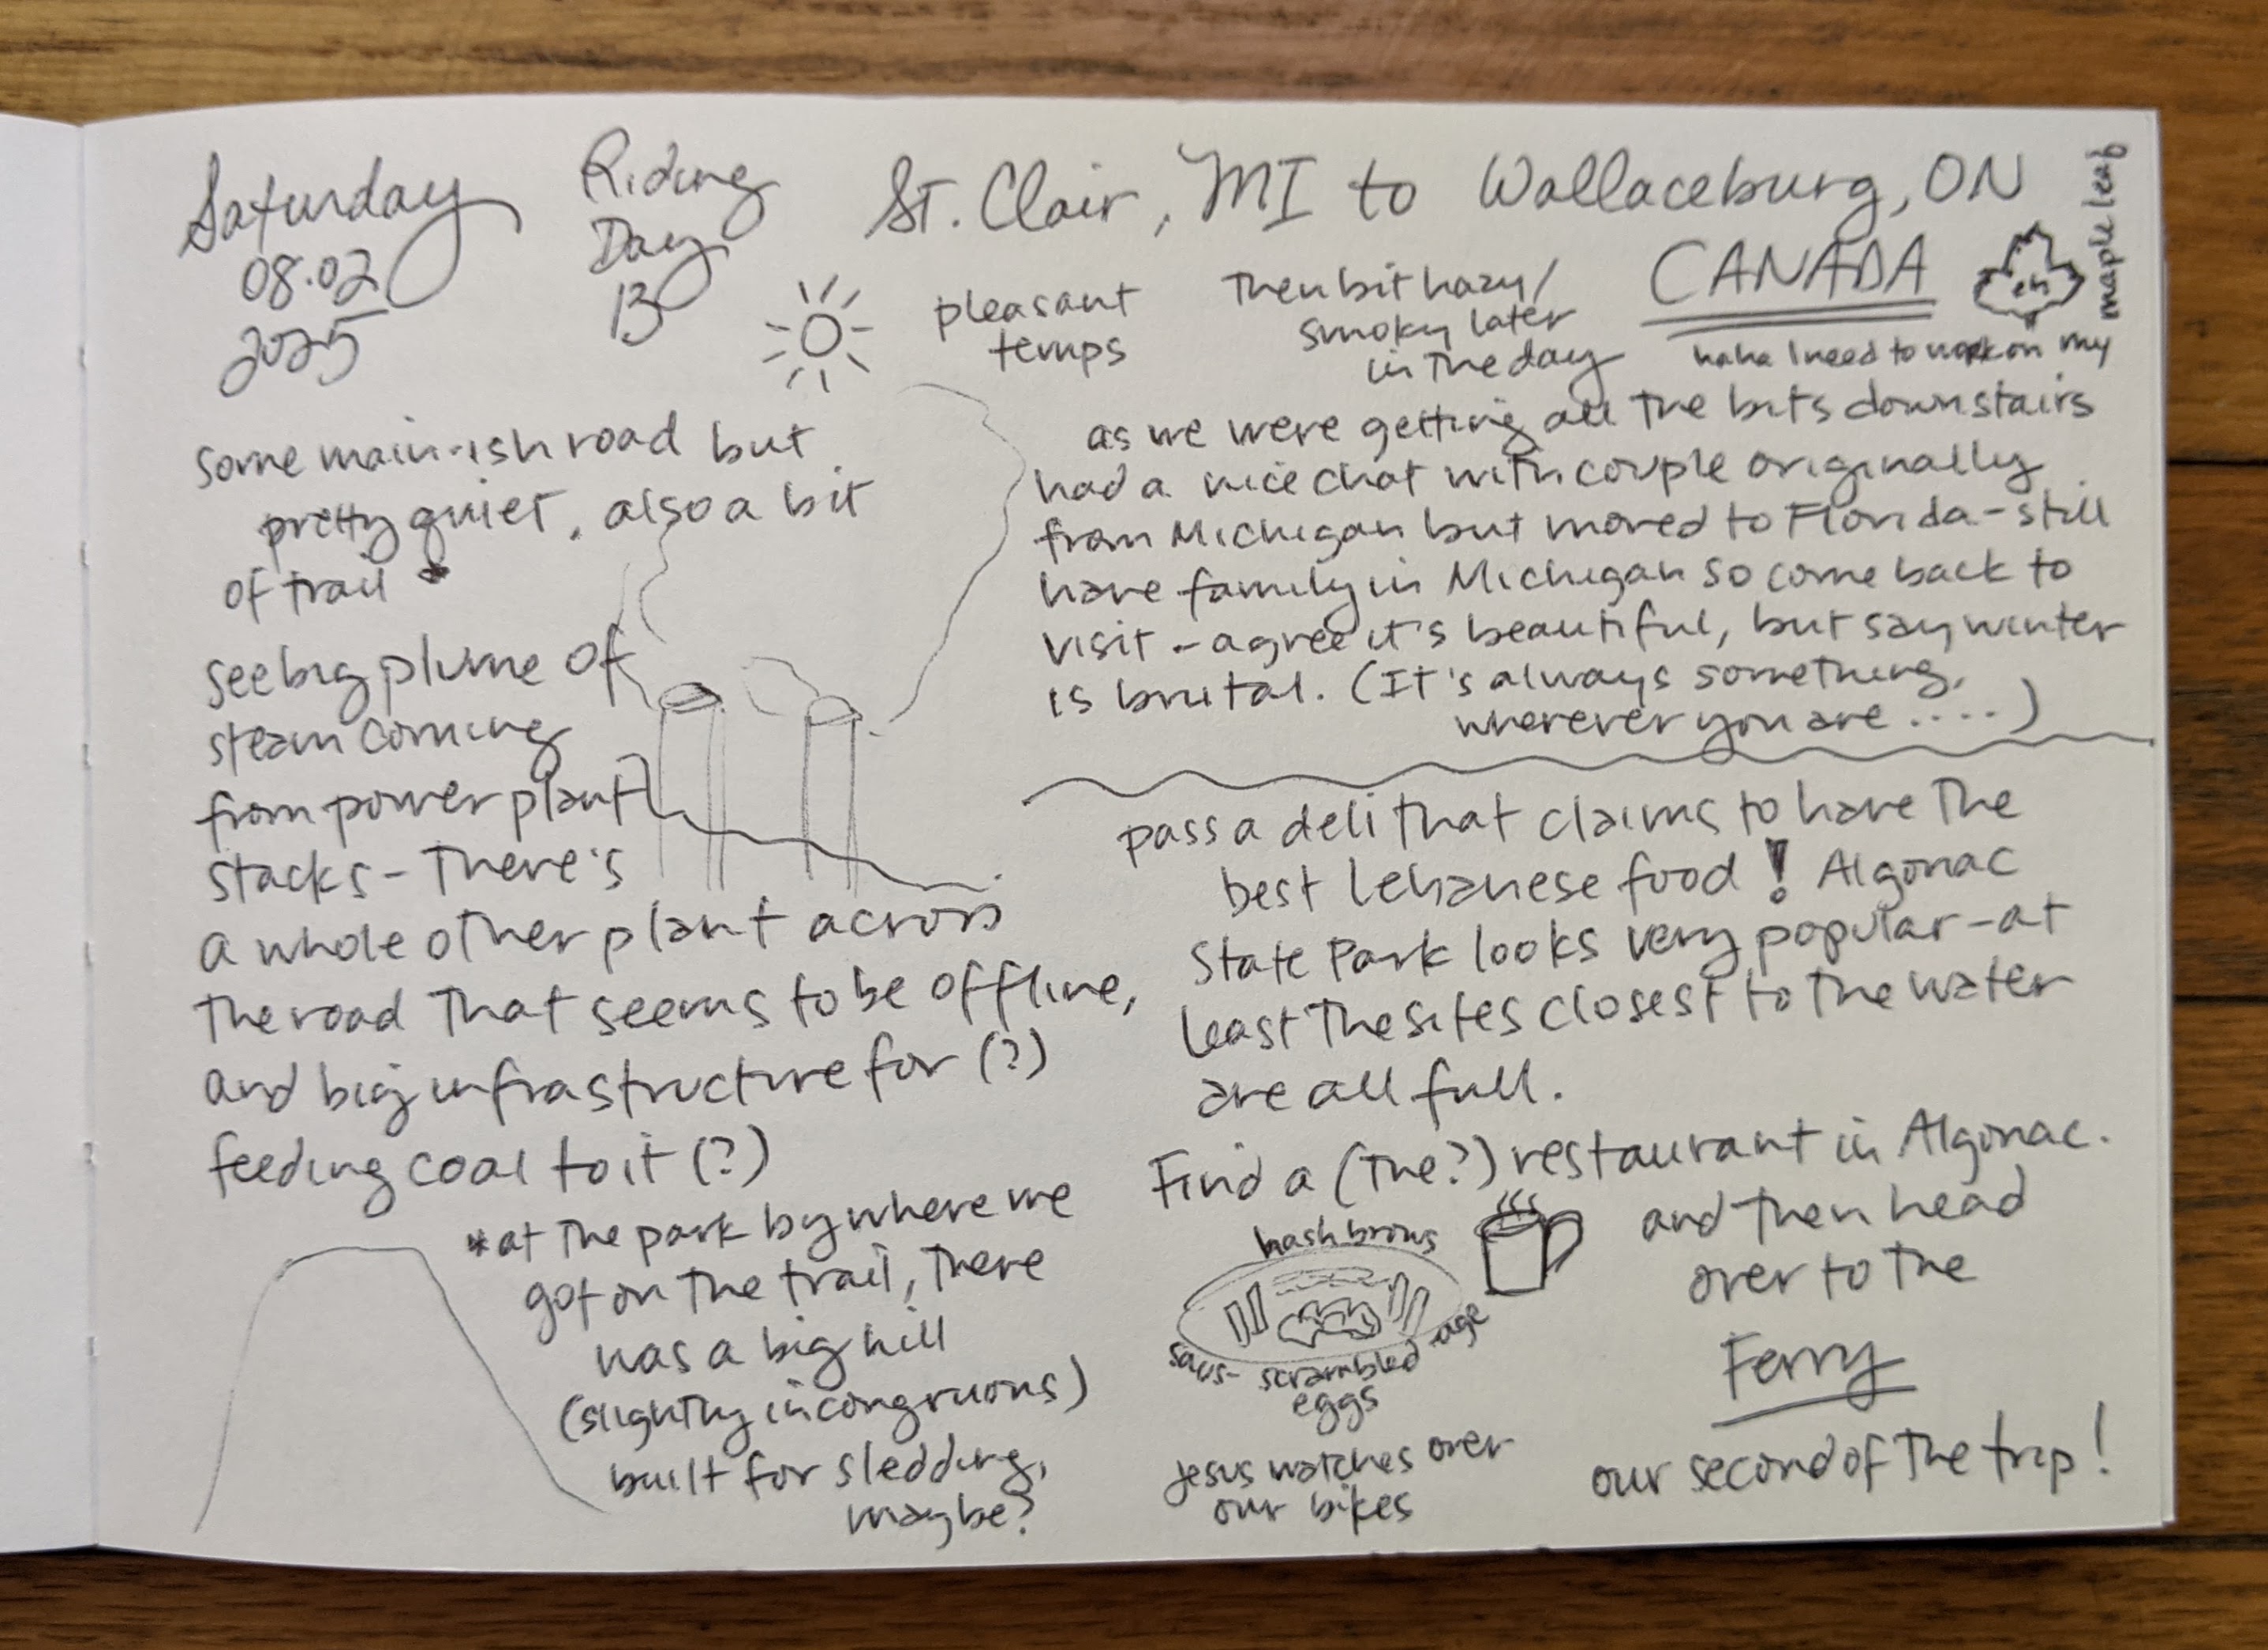 Saturday
08.02
2025
Riding
Day
13
St. Clair, MI to Wallaceburg, ON
CANADA
eh
haha I need to work on my
maple leaf
pleasant
temps
Then bit hazy/
smoky later
in the day
some main-ish road but
pretty quiet, also a bit
of trail *
see big plume of
steam coming
from power plant
stacks - there's
a whole other plant across
the road that seems to be offline,
and big infrastructure for (?)
feeding coal to it (?)
*at the park by where we
got on the trail, there
was a big hill
(slightly incongruous)
built for sledding,
maybe?
as we were getting all the bits downstairs
had a nice chat with couple originally
from Michigan but moved to Florida - still
have family in Michigan so come back to
visit - agree it's beautiful, but say winter
is brutal. (It's always something,
wherever you are ....)
pass a deli that claims to have the
best Lebanese food! Algonac
State Park looks very popular - at
least the sites closest to the water
are all full.
Find a (the?) restaurant in Algonac.
hash browns
saus- scrambled -age
eggs
Jesus watches over
our bikes
and then head
over to the
Ferry
our second of the trip!